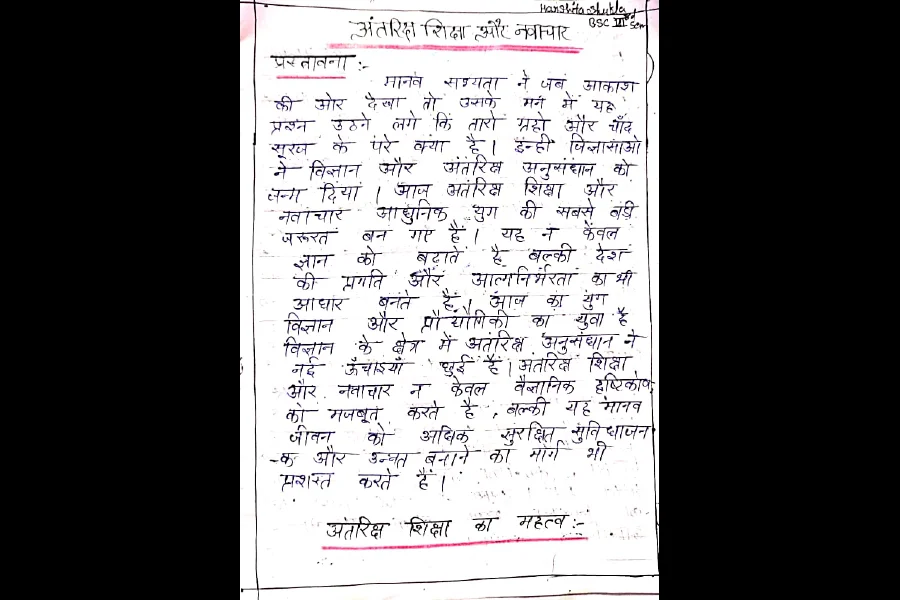 Harshita Shukla
BSC III Sem
अंतरिक्ष शिक्षा और नवाचार
प्रस्तावना :-
मानव सभ्यता ने जब आकाश
की ओर देखा तो उसके मन में यह
प्रश्न उठने लगे कि तारो ग्रहो और चाँद
सूरज के परे क्या है। इन्ही जिज्ञासाओ
ने विज्ञान और अंतरिक्ष अनुसंधान को
जन्म दिया। आज अंतरिक्ष शिक्षा और
नवाचार आधुनिक युग की सबसे बड़ी
जरूरत बन गए हैं। यह न केवल
ज्ञान को बढ़ाते है बल्की देश
की प्रगति और आत्मनिर्भरता का भी
आधार बनते हैं। आज का युग
विज्ञान और प्रौयौगिकी का युवा है
विज्ञान के क्षेत्र में अंतरिक्ष अनुसंधान ने
नई ऊँचाइयाँ छुई हैं। अंतरिक्ष शिक्षा
और नवाचार न केवल वैज्ञानिक दृष्टिकोण
को मजबूत करते है, बल्की यह मानव
जीवन को अधिक सुरक्षित सुविधाजन
-क और उन्नत बनाने का मार्ग भी
प्रशस्त करते हैं।
अंतरिक्ष शिक्षा का महत्व :-